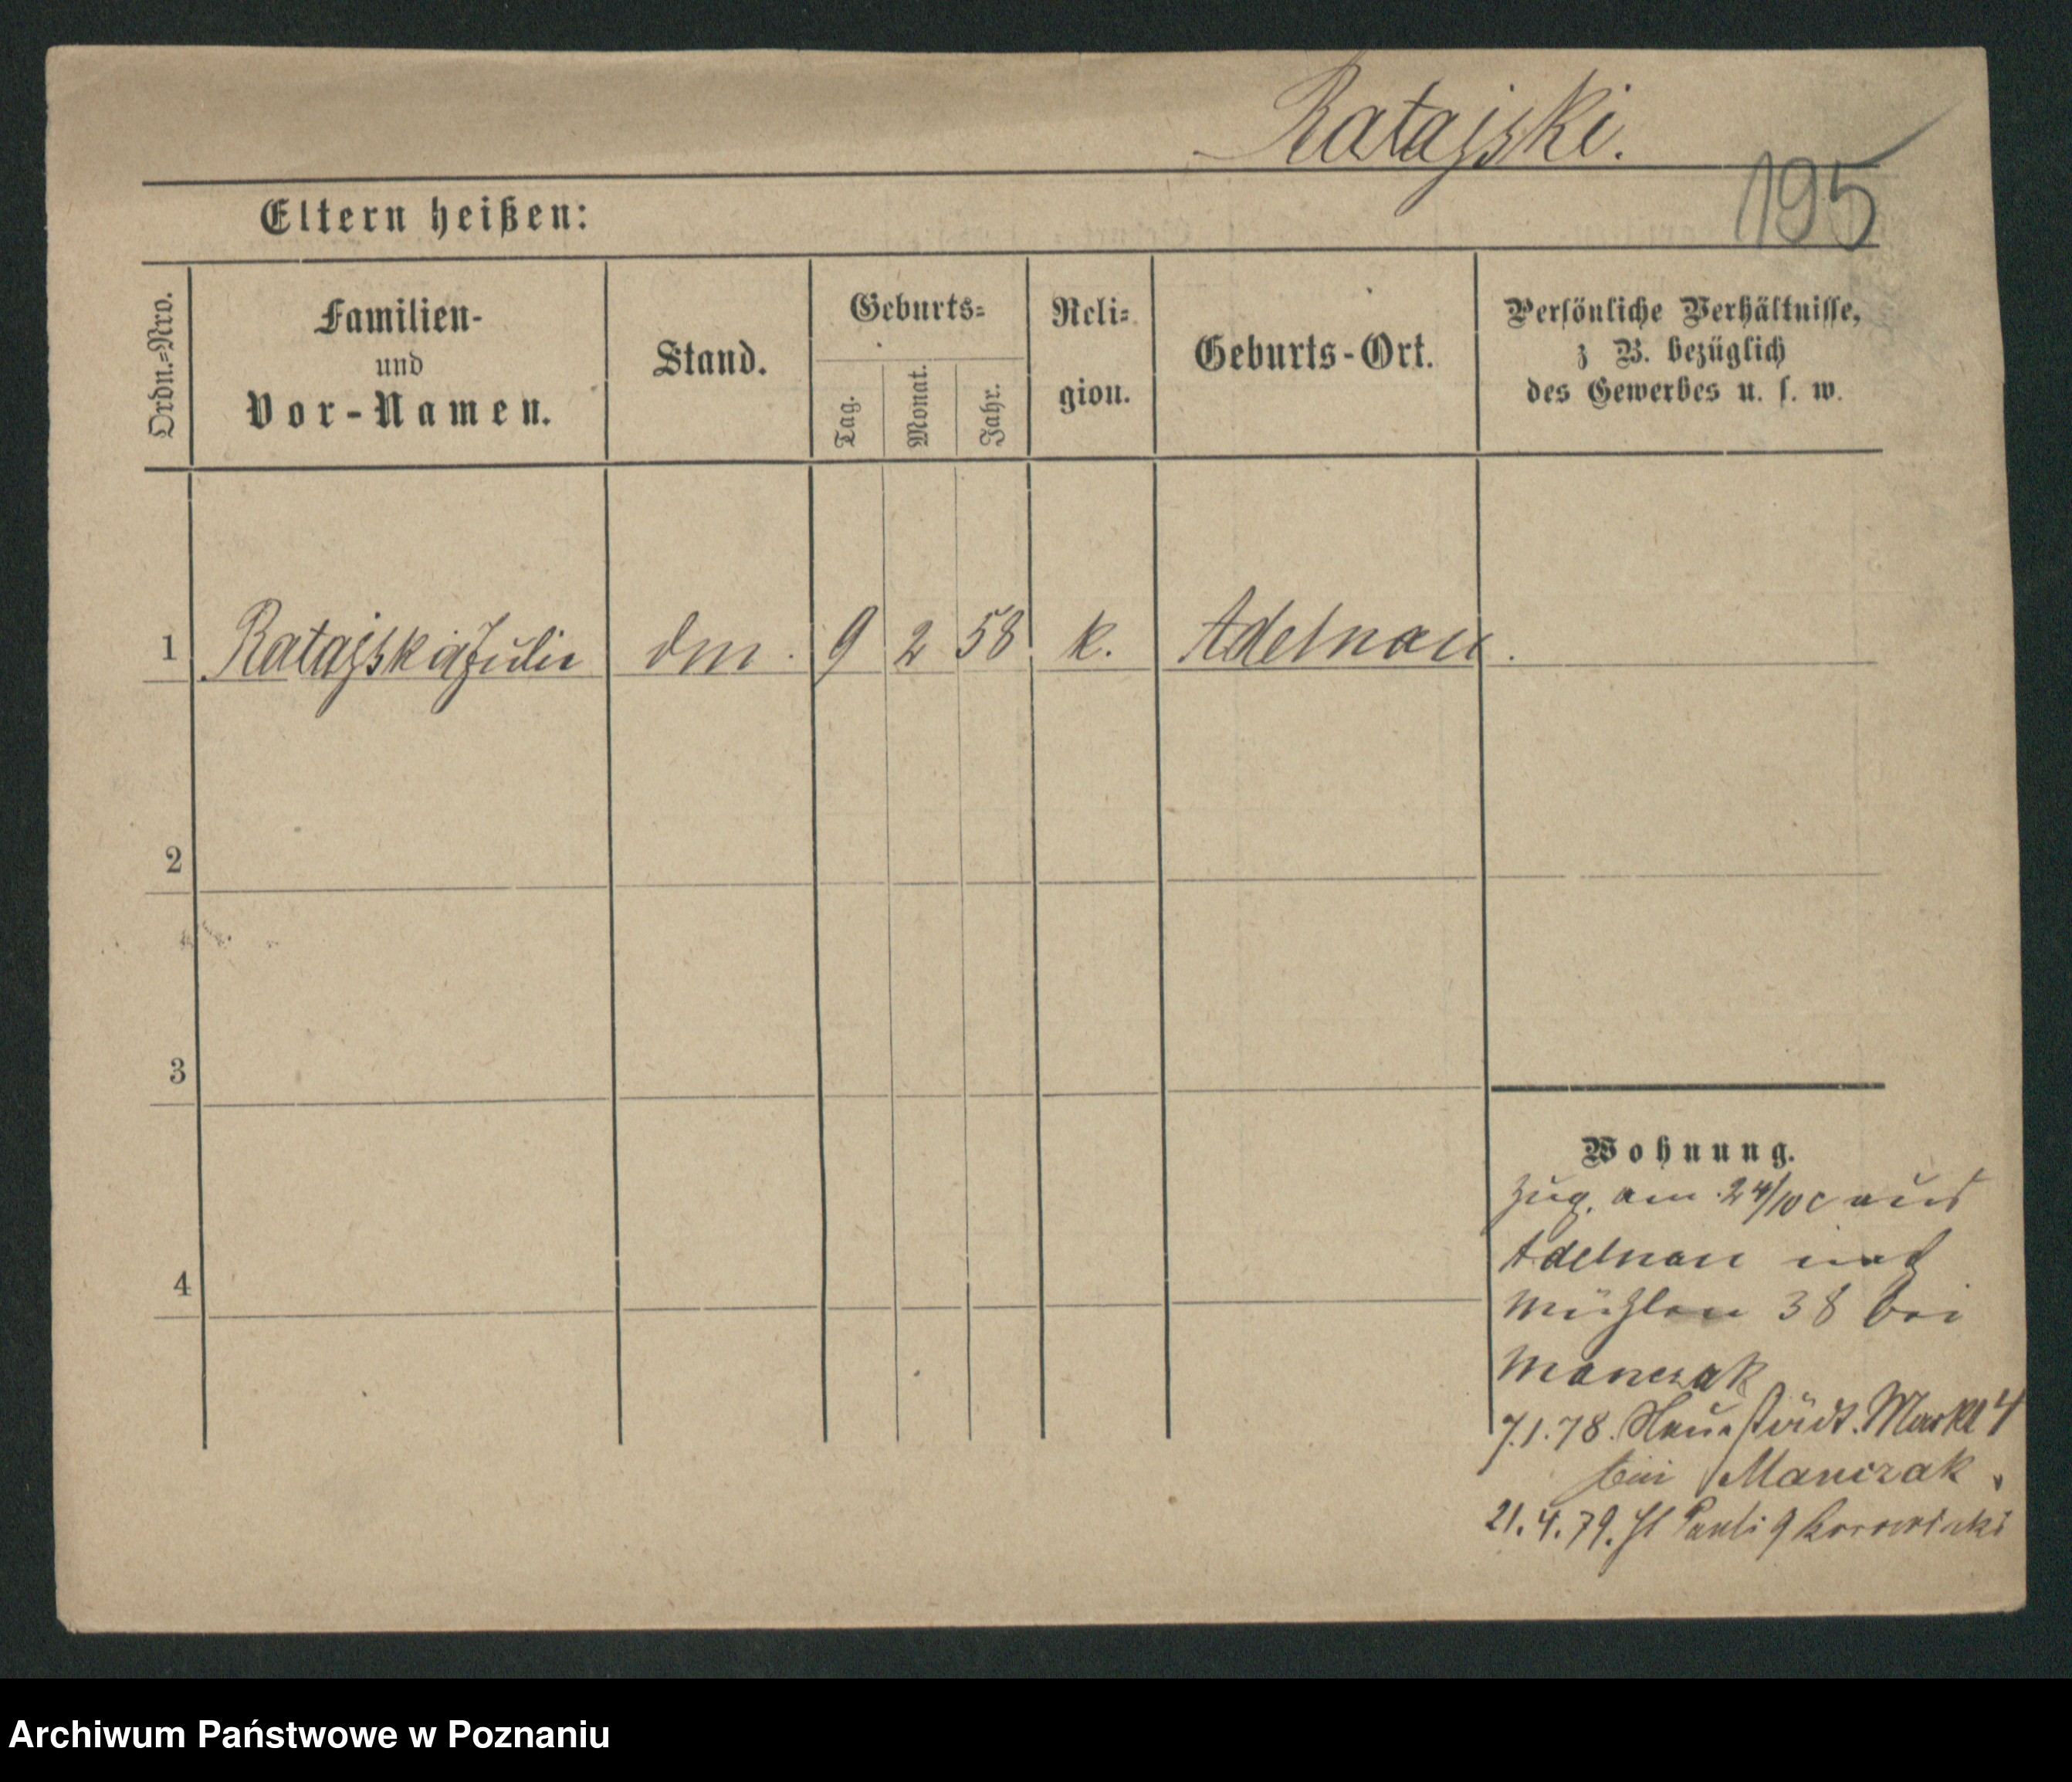 Ratajski.
195
Eltern heißen:
Ordn.=Nro.
Familien-
und
Vor-Namen.
Stand.
Geburts=
Tag.
Monat.
Jahr.
Reli=
gion.
Geburts-Ort.
Persönliche Verhältnisse,
z B. bezüglich
des Gewerbes u. s. w.
1 Ratajska Julie dm. 9 2 58 k. Adelnau.
2
3
4
Wohnung.
Zug. am 24/10 c aus
Adelnau nach
Mühlen 38 bei
Manczak
7.1.78. Neustädt. Markt 4
bei Manczak.
21.4.79. St Pauli 9
Archiwum Państwowe w Poznaniu